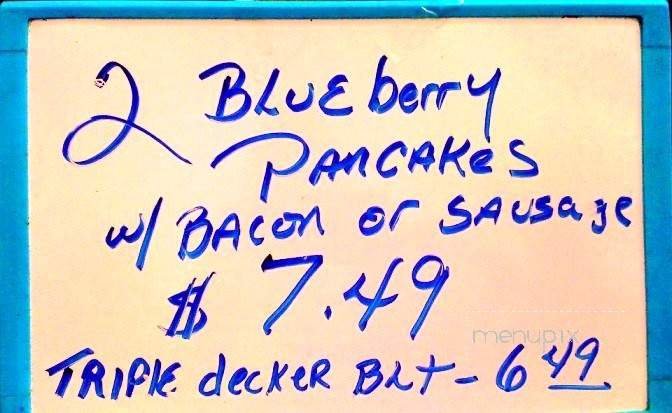 2 BLUEberry
PANCAKES
w/ BACON or SAUsage
$ 7.49
menupix
TRIPlE decker BLT - 6 49